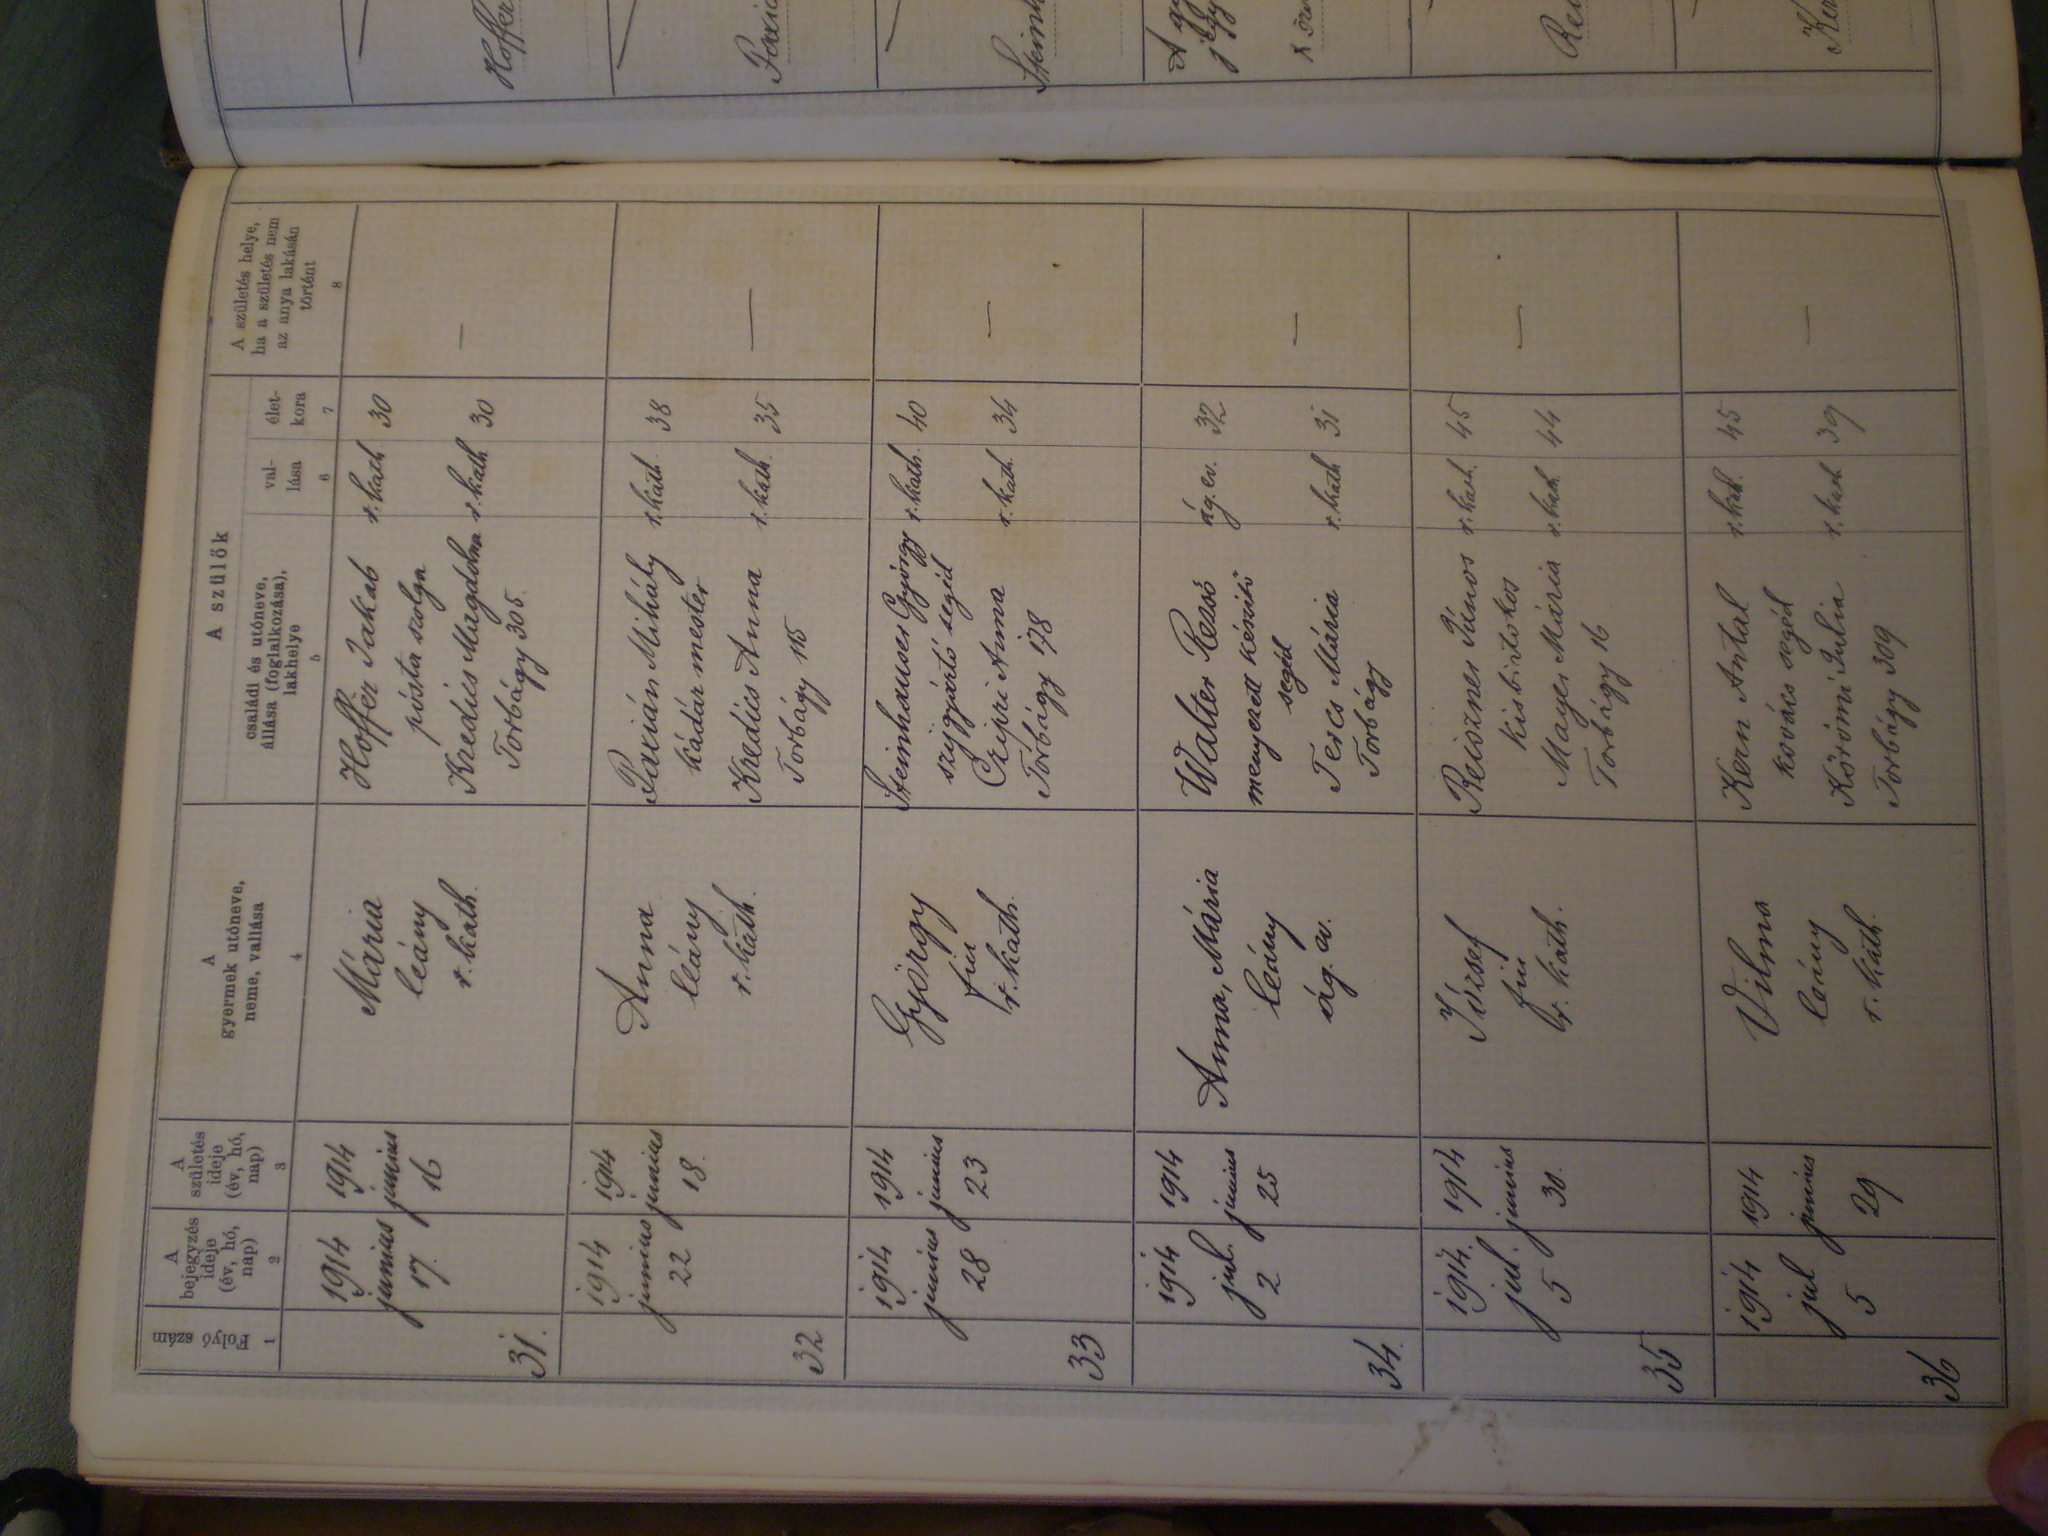 Folyó szám
1
A
bejegyzés
ideje
(év, hó,
nap)
2
A
születés
ideje
(év, hó,
nap)
3
A
gyermek utóneve,
neme, vallása
4
A szülők
családi és utóneve,
állása (foglalkozása),
lakhelye
5
val-
lása
6
élet-
kora
7
A születés helye,
ha a születés nem
az anya lakásán
történt
8
31.
1914
junius
17.
1914
junius
16
Mária
leány
r. kath.
Hoffer Jakab r. kath 30
pósta szolga
Kredics Magdolna r. kath 30
Torbágy 305.
—
32
1914
junius
22
1914
junius
18.
Anna
leány
r. kath.
Paxián Mihály r. kath. 38
kádár mester
Kredics Anna r. kath. 35
Torbágy 115
—
33
1914
junius
28
1914
junius
23
György
fiu
r. kath.
Steinhauser György r. kath. 40
szijgyártó segéd
Czipri Anna r. kath. 34
Torbágy 178
—
34.
1914
jul.
2
1914
junius
25
Anna, Mária
leány
ág. ev.
Walter Rezső ág. ev. 32
menyezett készitő
segéd
Tescs Mária r. kath 31
Torbágy
—
35
1914.
jul.
5
1914
junius
30.
József
fiu
r. kath.
Reiszner János r. kath. 45
kisbirtokos
Mayer Mária r. kath. 44
Torbágy 16
—
36
1914
jul
5
1914
junius
29
Vilma
leány
r. kath.
Kern Antal r. kath. 45
kovács segéd
Körömi Julia r. kath 39
Torbágy 309
—
Hoffer